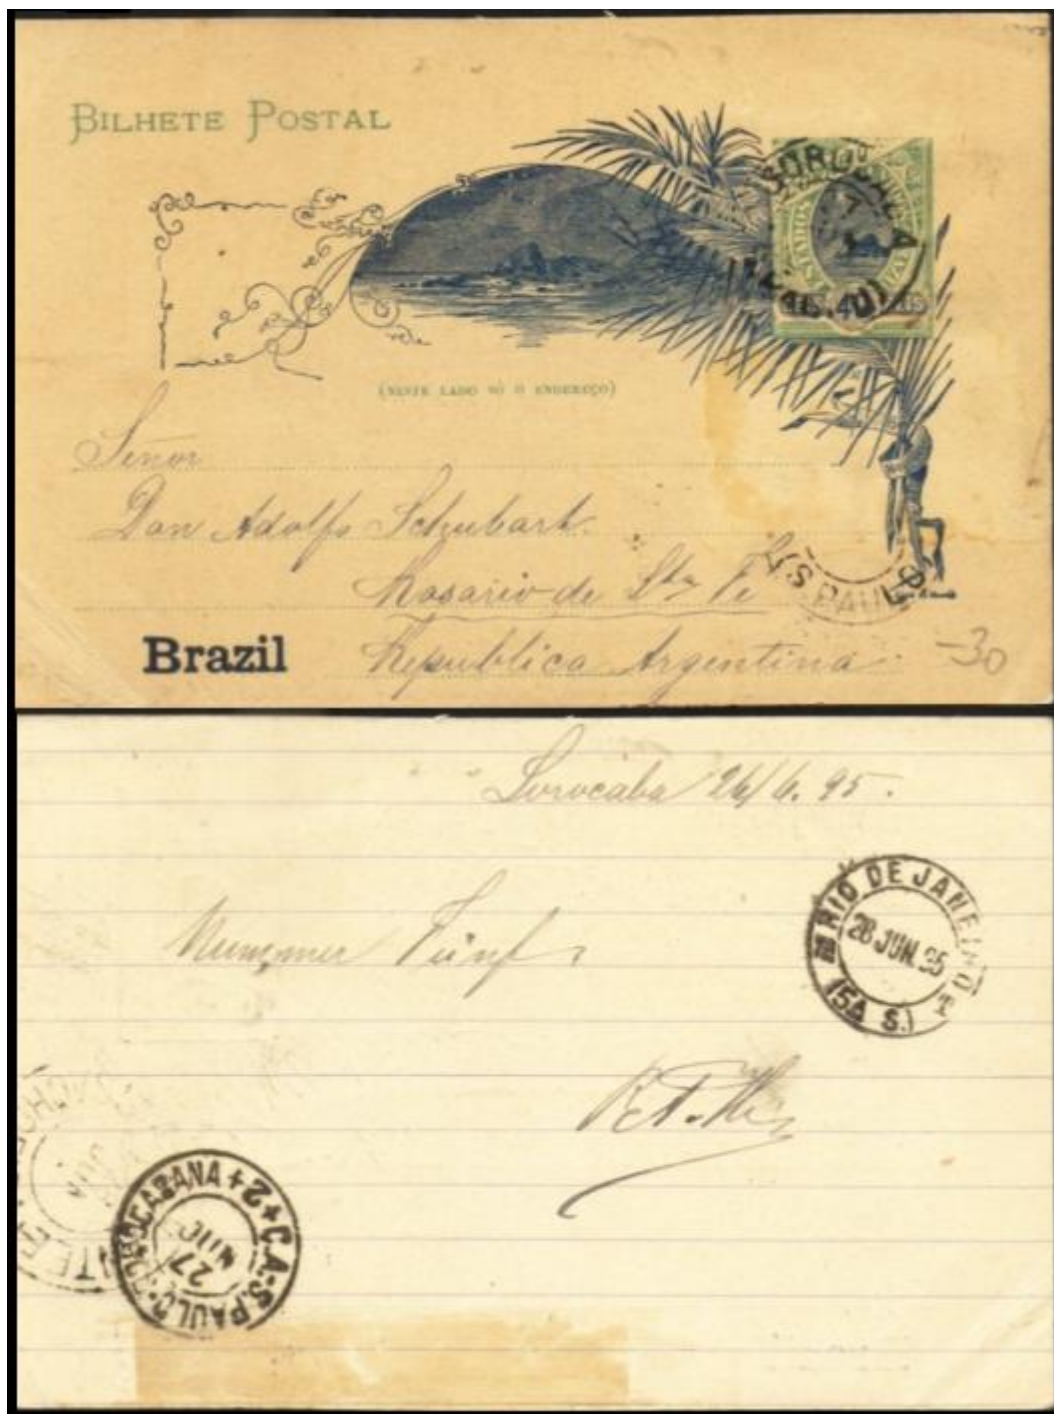 BILHETE POSTAL
SOROCABA
(NESTE LADO SÓ O ENDEREÇO)
Señor
Don Adolfo Schubart.
Rosario de Sta Fé
(S. PAULO)
Brazil
Republica Argentina.
-30
Sorocaba 26/6.95.
RIO DE JANEIRO
28 JUN. 95
(5A S.)
Nummer Fünf
C.A-S.PAULO-SOROCABANA+2+
27